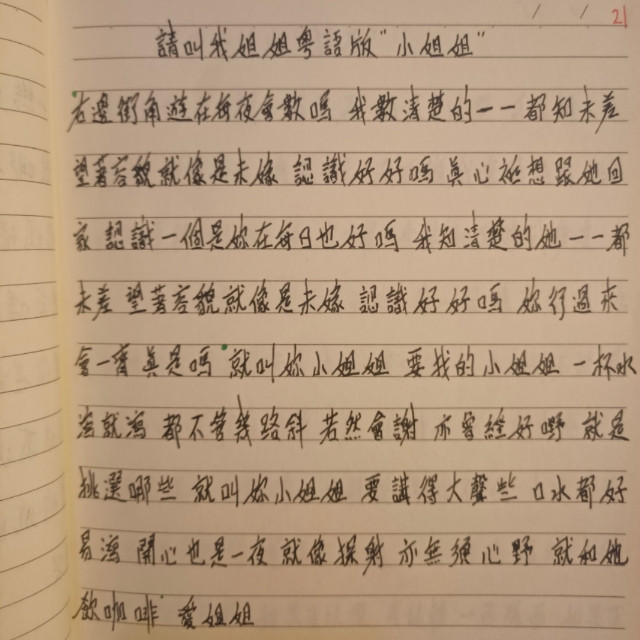 21
請叫我姐姐粵語版"小姐姐"
右邊街角遊在每夜會數嗎 我數清楚的一一都知未差
望著容貌就像是未嫁 認識好好嗎 真心祗想跟她回
家 認識一個是妳在每日也好嗎 我知清楚的她一一都
未差 望著容貌就像是未嫁 認識好好嗎 妳行過來
會一齊真是嗎 就叫妳小姐姐 要我的小姐姐 一杯水
瀉就瀉 都不管幾路斜 若然會謝 亦曾經好嘢 就是
挑選哪些 就叫妳小姐姐 要講得大聲些 口水都好
易瀉 開心也是一夜 就像探射 亦無須心野 就和她
飲咖啡 愛姐姐